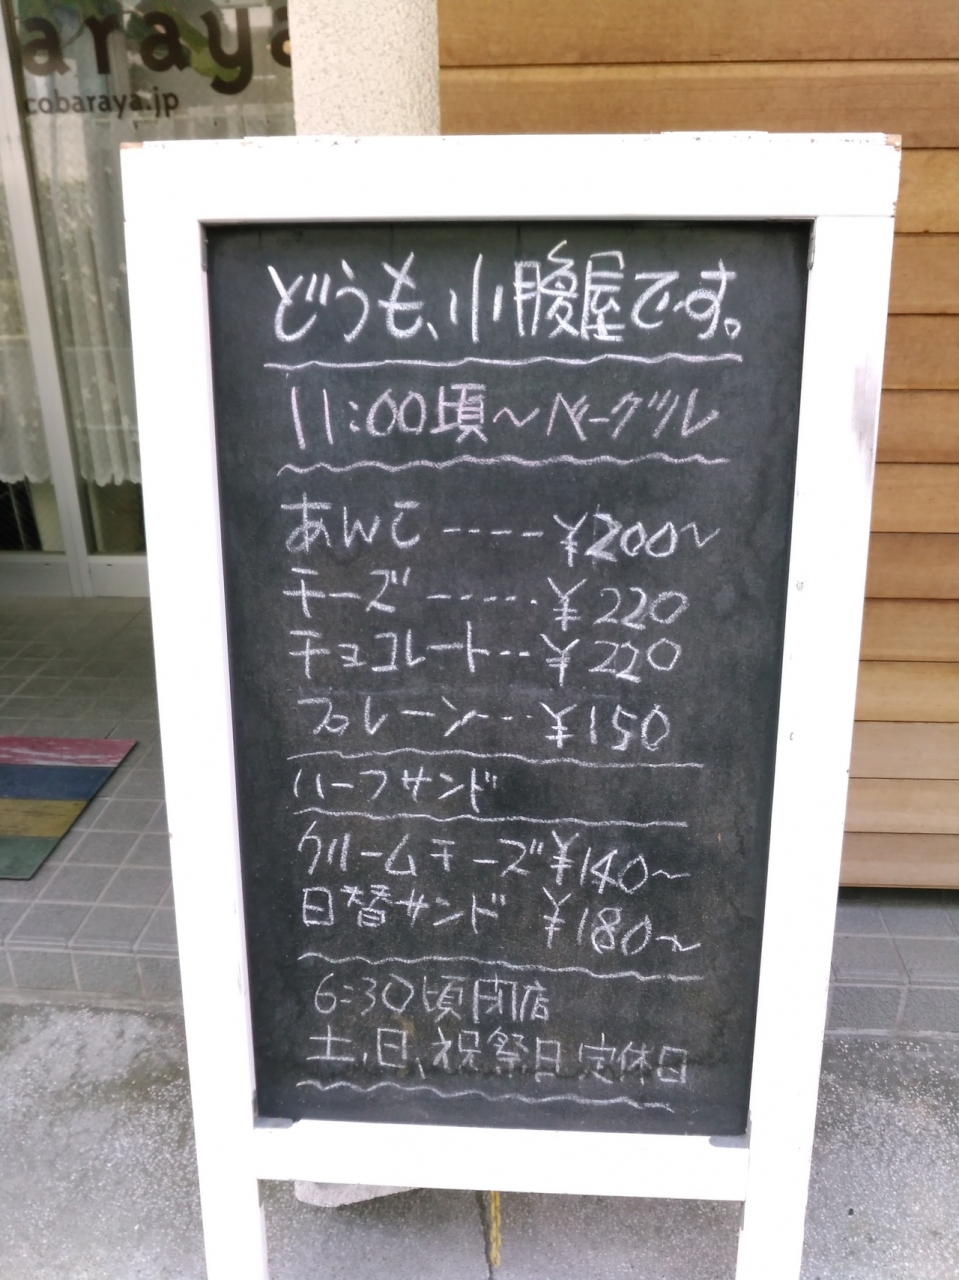 araya
cobaraya.jp
どうも、小腹屋です。
11:00頃〜ベーグル
あんこ ---- ¥200〜
チーズ ----- ¥220
チョコレート -- ¥220
プレーン --- ¥150
ハーフサンド
クリームチーズ ¥140〜
日替サンド ¥180〜
6:30頃閉店
土、日、祝祭日定休日